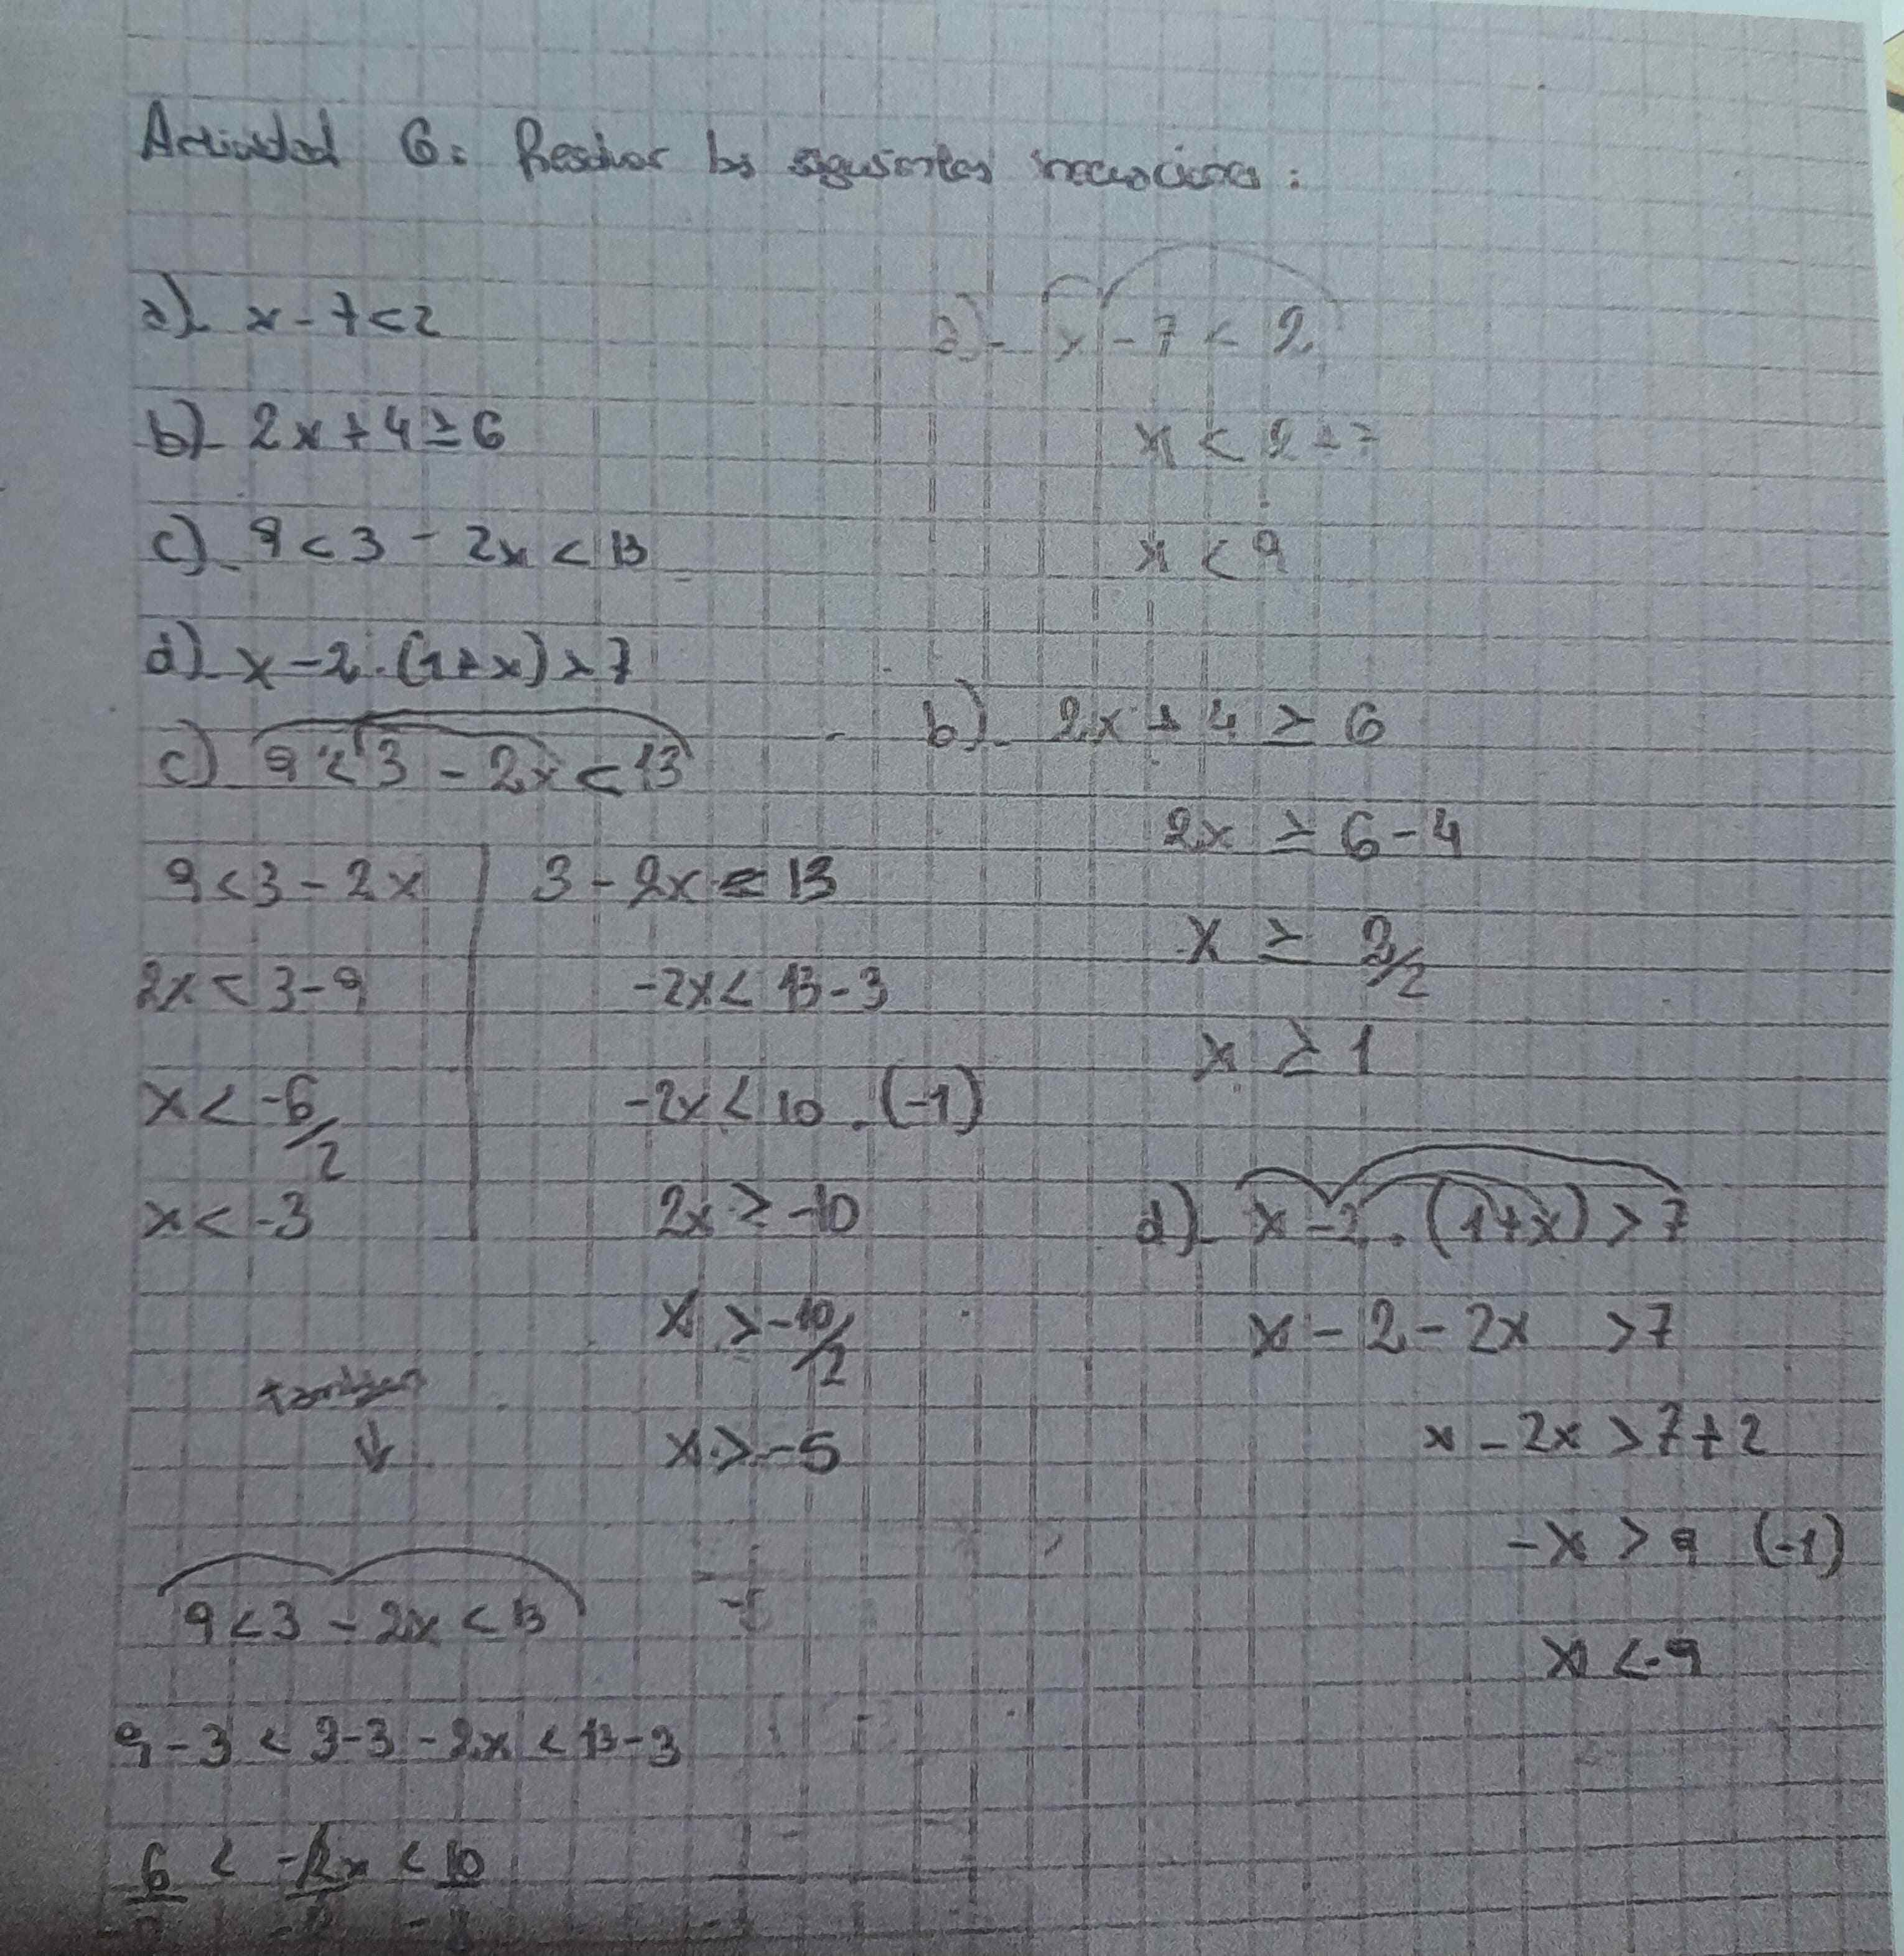 Actividad 6: Resolver las siguientes inecuaciones:
a)- x - 7 < 2
b)- 2x + 4 ≥ 6
c)- 9 < 3 - 2x < 13
d)- x - 2 . (1 + x) > 7
a)- x - 7 < 2
x < 2 + 7
x < 9
b)- 2x + 4 ≥ 6
2x ≥ 6 - 4
x ≥ 2/2
x ≥ 1
c) 9 < 3 - 2x < 13
9 < 3 - 2x | 3 - 2x < 13
2x < 3 - 9 | -2x < 13 - 3
x < -6/2 | -2x < 10 . (-1)
x < -3 | 2x > -10
x > -10/2
x > -5
d)- x - 2 . (1 + x) > 7
x - 2 - 2x > 7
x - 2x > 7 + 2
-x > 9 (-1)
x < -9
tambien
↓
9 < 3 - 2x < 13
9 - 3 < 3 - 3 - 2x < 13 - 3
6 < -2x < 10